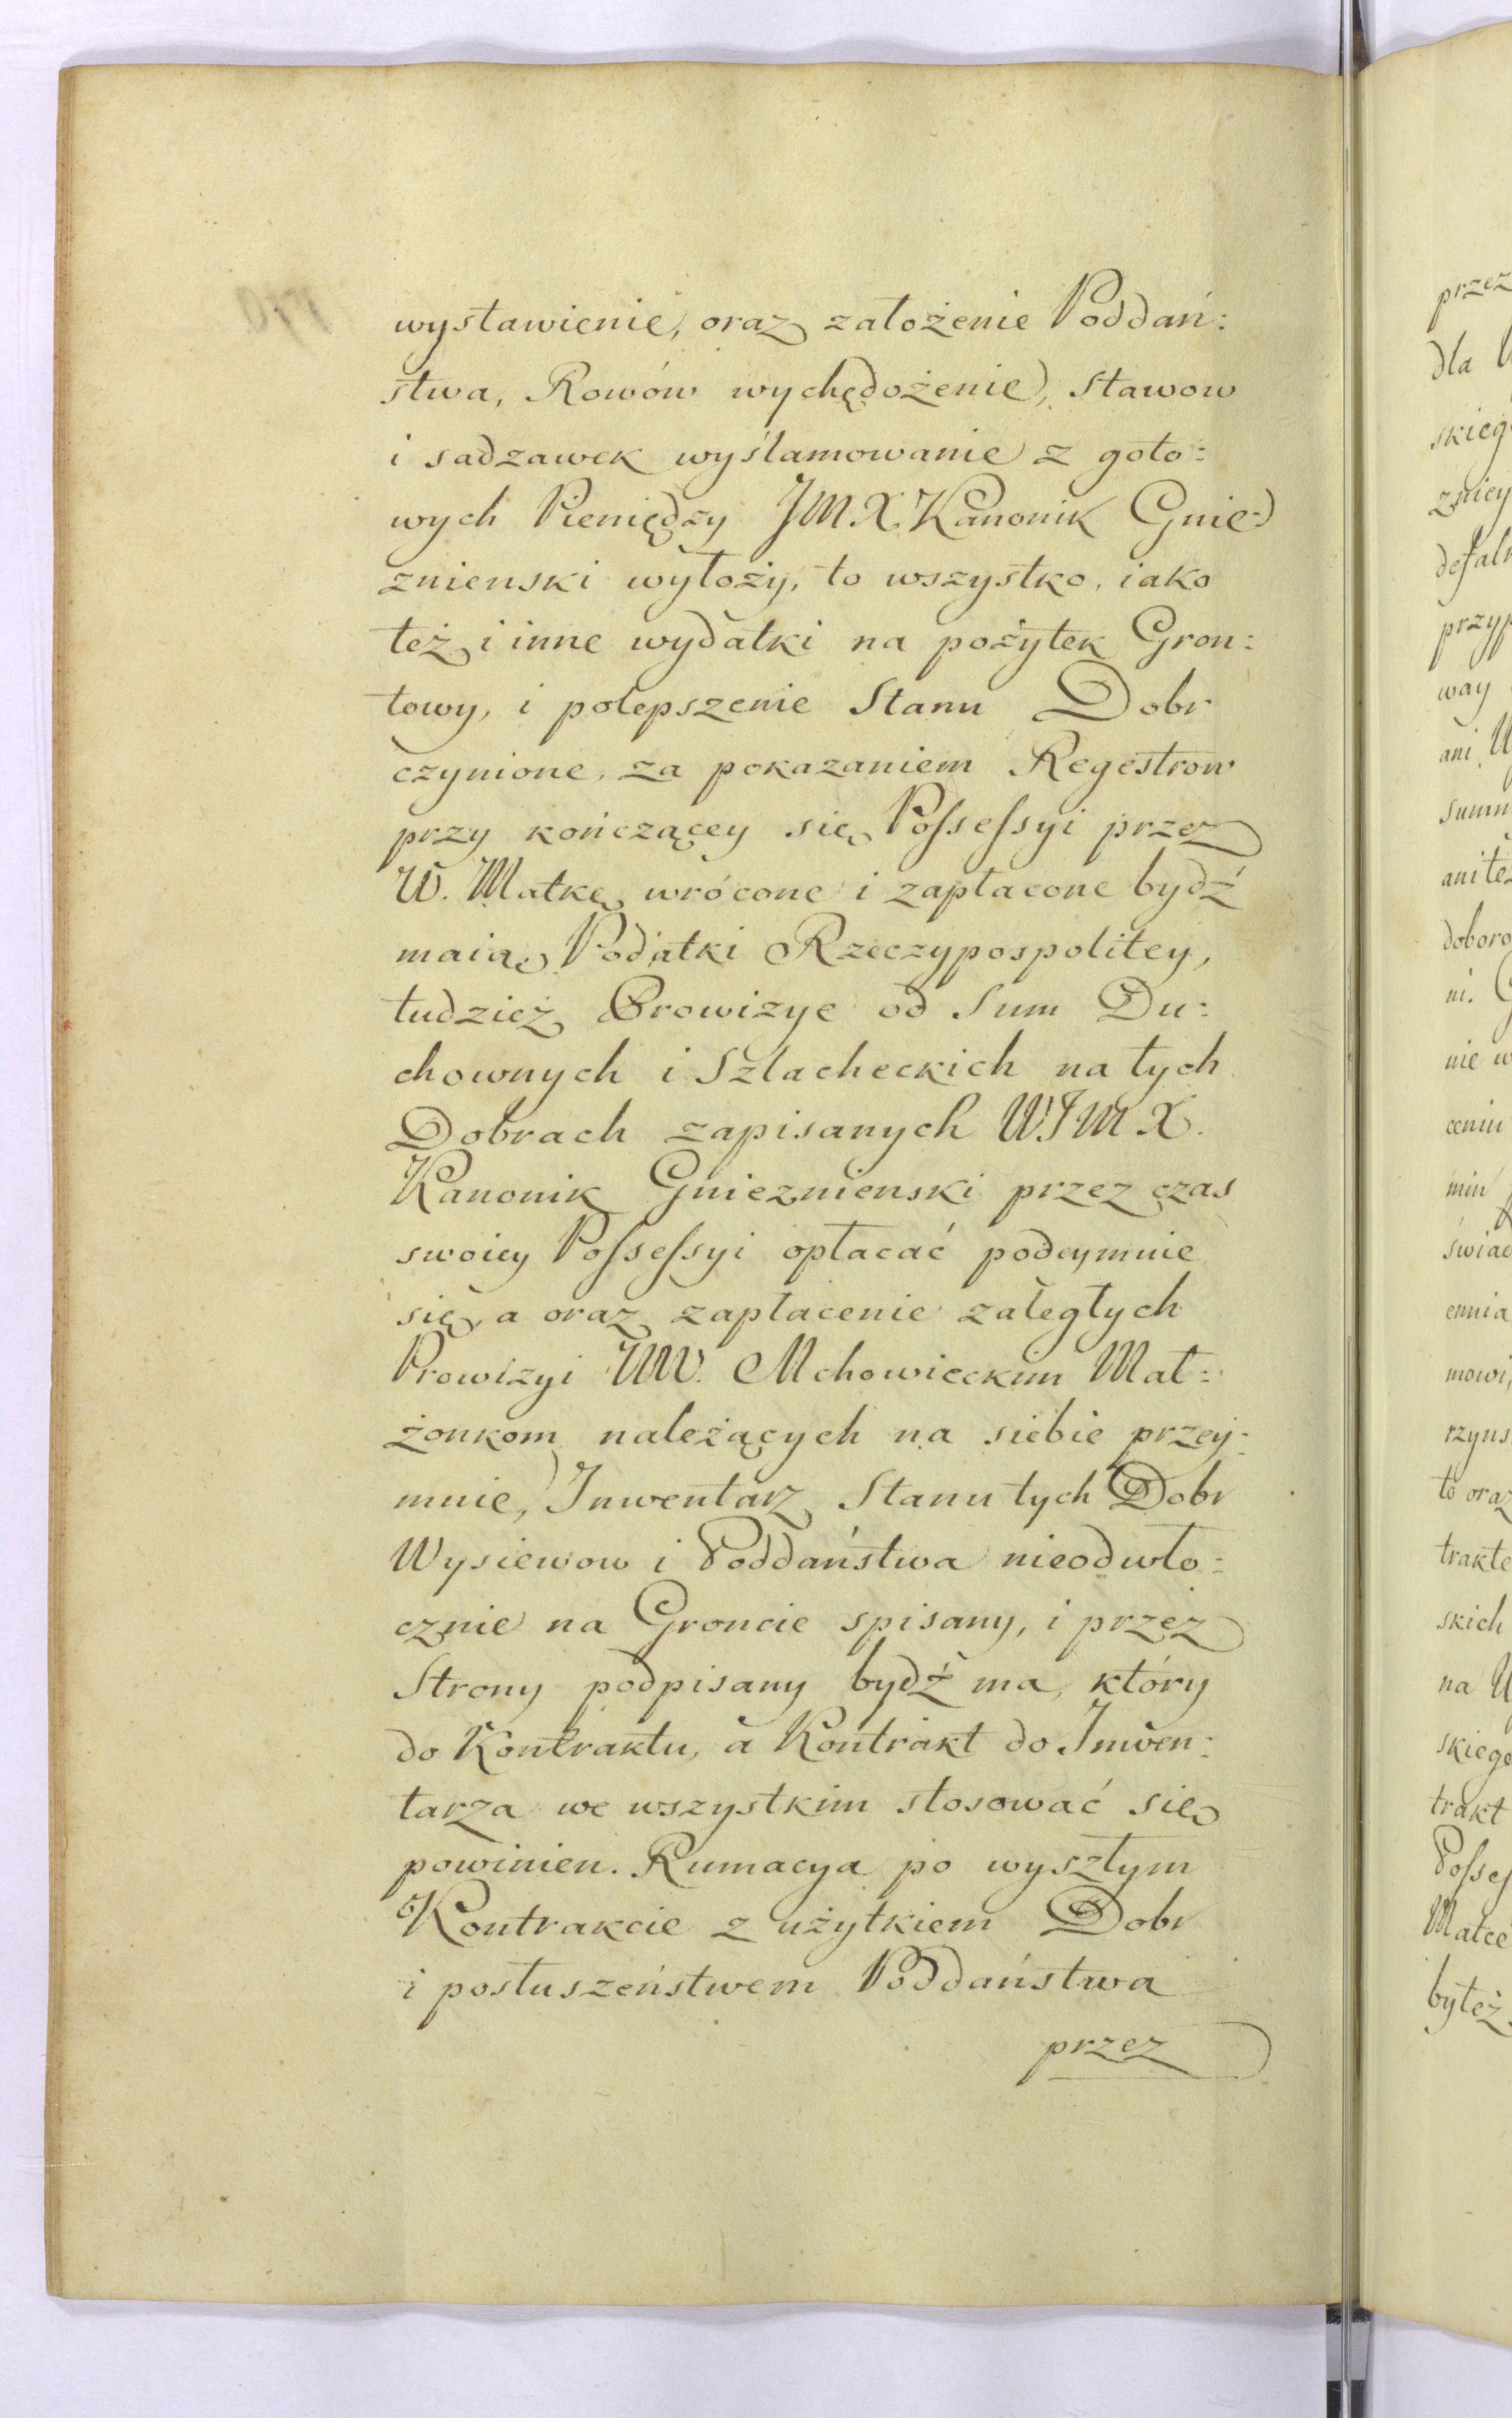 wystawienie, oraz założenie Poddań:
stwa, Rowów wychędożenie, Stawow
i sadzawek wyślamowanie z goto:
wych Pieniędzy JMX. Kanonik Gnie:
znienski wyłoży, to wszystko, iako
też i inne wydatki na pożytek Gron:
towy, i polepszenie Stanu Dobr
czynione, za pokazaniem Regestrow
przy kończącey się Possessyi przez
W. Matkę wrócone i zapłacone bydź
maią, Podatki Rzeczypospolitey,
tudzież Prowizye od Sum Du:
chownych i Szlacheckich na tych
Dobrach zapisanych WJMX.
Kanonik Gnieznienski przez czas
swoiey Possessyi opłacać podeymuie
się, a oraz zapłacenie zaległych
Prowizyi WW. Mchowieckim Mał:
żonkom należących na siebie przey:
muie, Inwentarz Stanu tych Dobr
Wysiewow i Poddaństwa nieodwło:
cznie na Groncie spisany, i przez
Strony podpisany bydź ma, który
do Kontraktu, a Kontrakt do Inwen:
tarza we wszystkim stosować się
powinien. Rumacya po wyszłym
Kontrakcie z użytkiem Dobr
i posłuszeństwem Poddaństwa
przez
przez
dla
skieg
zniey
defal
przyp
way
ani
summ
ani te
doboro
ni.
nie w
ceniu
min
świad
ennia
mowi,
rzyns
to oraz
trakte
skich
na
skiego
trakt
Posses
Matce
byteż